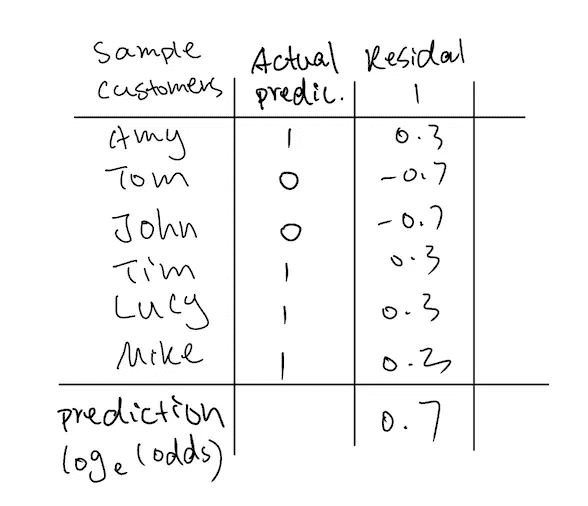 Sample Customers | Actual predic. | Residal 1
Amy | 1 | 0.3
Tom | 0 | -0.7
John | 0 | -0.7
Tim | 1 | 0.3
Lucy | 1 | 0.3
Mike | 1 | 0.3
prediction log e (odds) | | 0.7